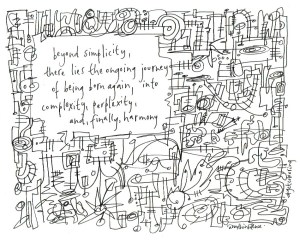 beyond simplicity,
there lies the ongoing journey
of being born again, into
complexity, perplexity,
and, finally, harmony